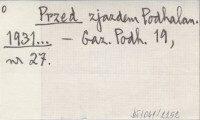 0
Przed zjazdem Podhalan.
1931... – Gaz. Podh. 19,
nr 27.